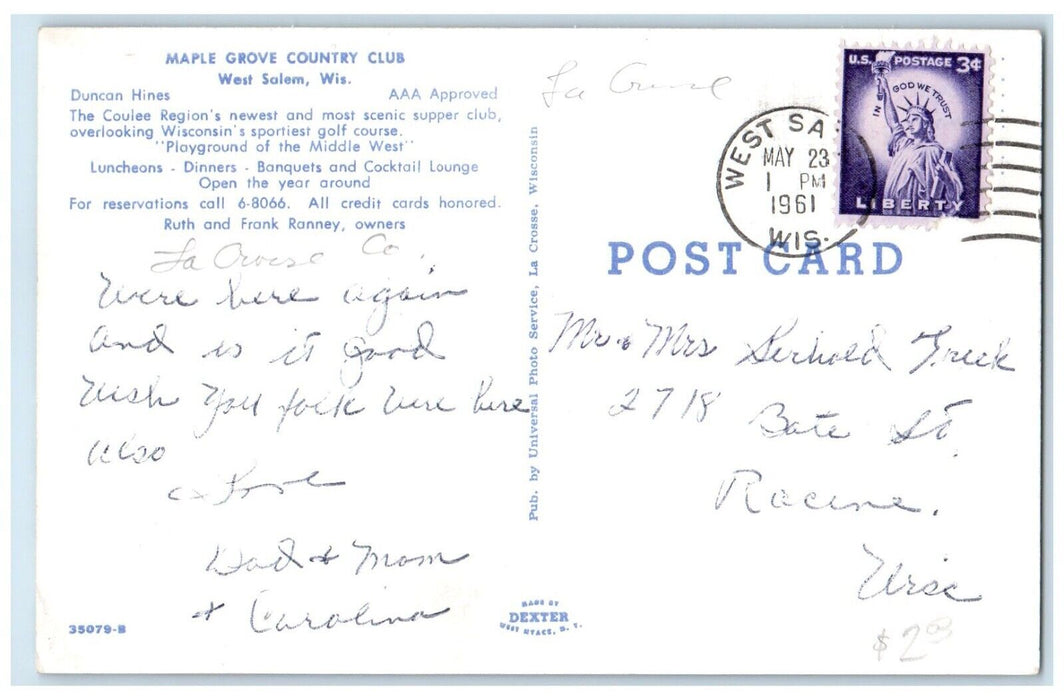 MAPLE GROVE COUNTRY CLUB
West Salem, Wis.
Duncan Hines AAA Approved
The Coulee Region's newest and most scenic supper club,
overlooking Wisconsin's sportiest golf course.
"Playground of the Middle West"
Luncheons - Dinners - Banquets and Cocktail Lounge
Open the year around
For reservations call 6-8066. All credit cards honored.
Ruth and Frank Ranney, owners
La Crosse Co.
Were here again
and is it good
Wish you folk were here
also
Love
Dad & Mom
+ Carolina
35079-B
Pub. by Universal Photo Service, La Crosse, Wisconsin
MADE BY
DEXTER
WEST NYACK, N. Y.
La Crosse
WEST SA
MAY 23
1 PM
1961
WIS.
U.S. POSTAGE 3¢
IN GOD WE TRUST
LIBERTY
POST CARD
Mr & Mrs
2718 Bate St.
Racine.
Wisc
$2